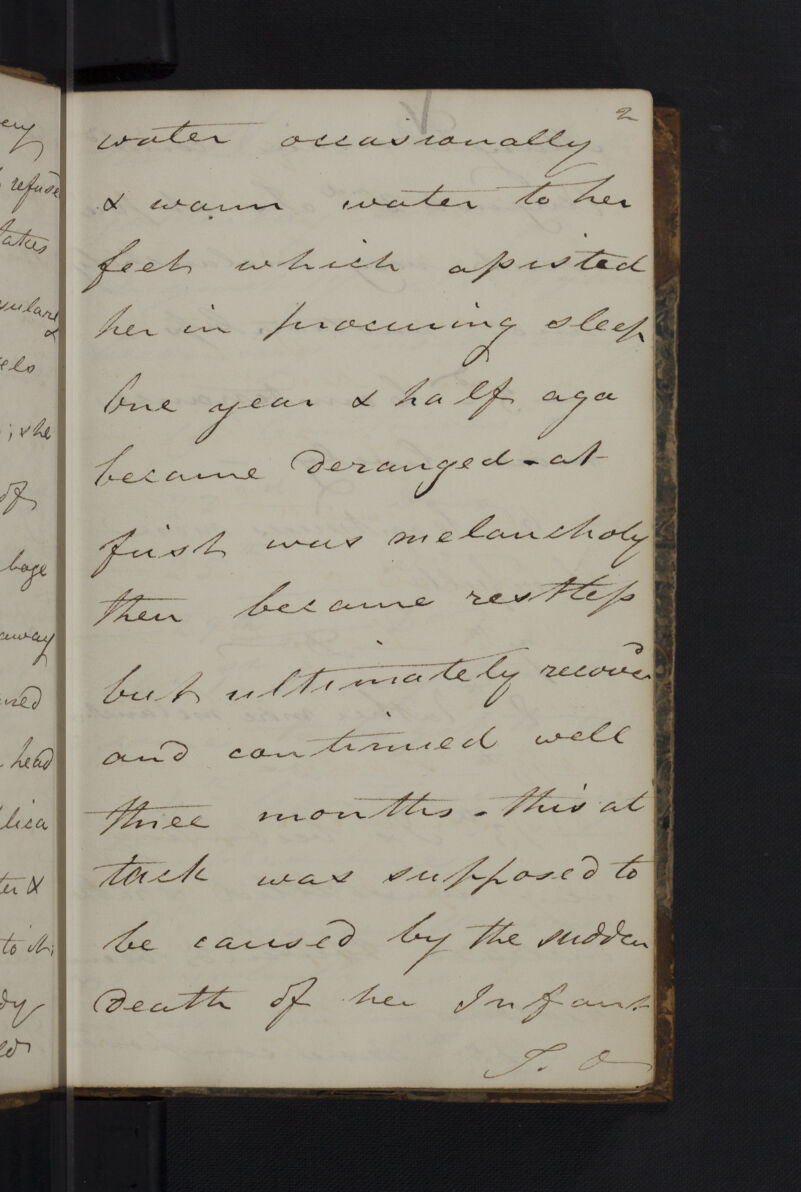 2
water occasionally
& warm water to her
feet which assisted
her in procuring sleep
One year & half ago
became deranged - at
first was melancholy
then became restless
but ultimately recov'd
and continued well
three months - this at
tack was supposed to
be caused by the sudden
death of her Infant
T. O
refuse
takes
&
els
; she
of
away
head
lica
to it;